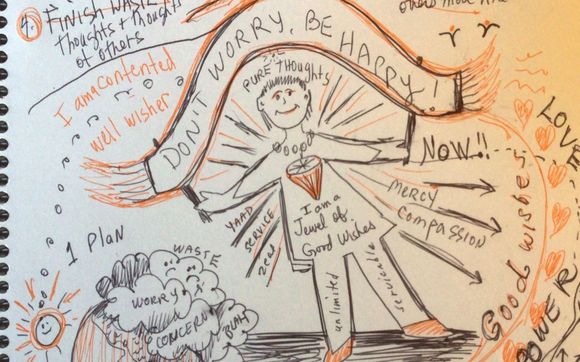 1.
FINISH WASTE
thoughts + thoughts
of others
others
I am a contented
well wisher
DON'T WORRY, BE HAPPY!
PURE THOUGHTS
NOW!!
LOVE
MERCY
COMPASSION
Good wishes
POWER
YAAD
SERVICE
I am a
Jewel of
Good Wishes
unlimited
serviceable
1 PLAN
WASTE
WORRY
CONCERN